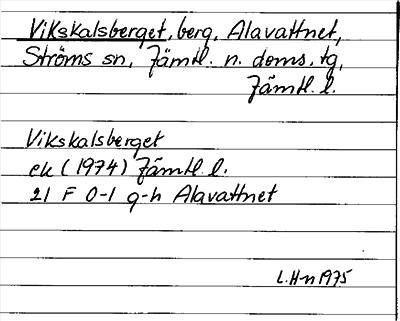 Vikskalsberget, berg, Alavattnet,
Ströms sn, Jämtl. n. doms. tg,
Jämtl. l.
Vikskalsberget
ek (1974) Jämtl. l.
21 F 0-1 g-h Alavattnet
L. H-n 1975